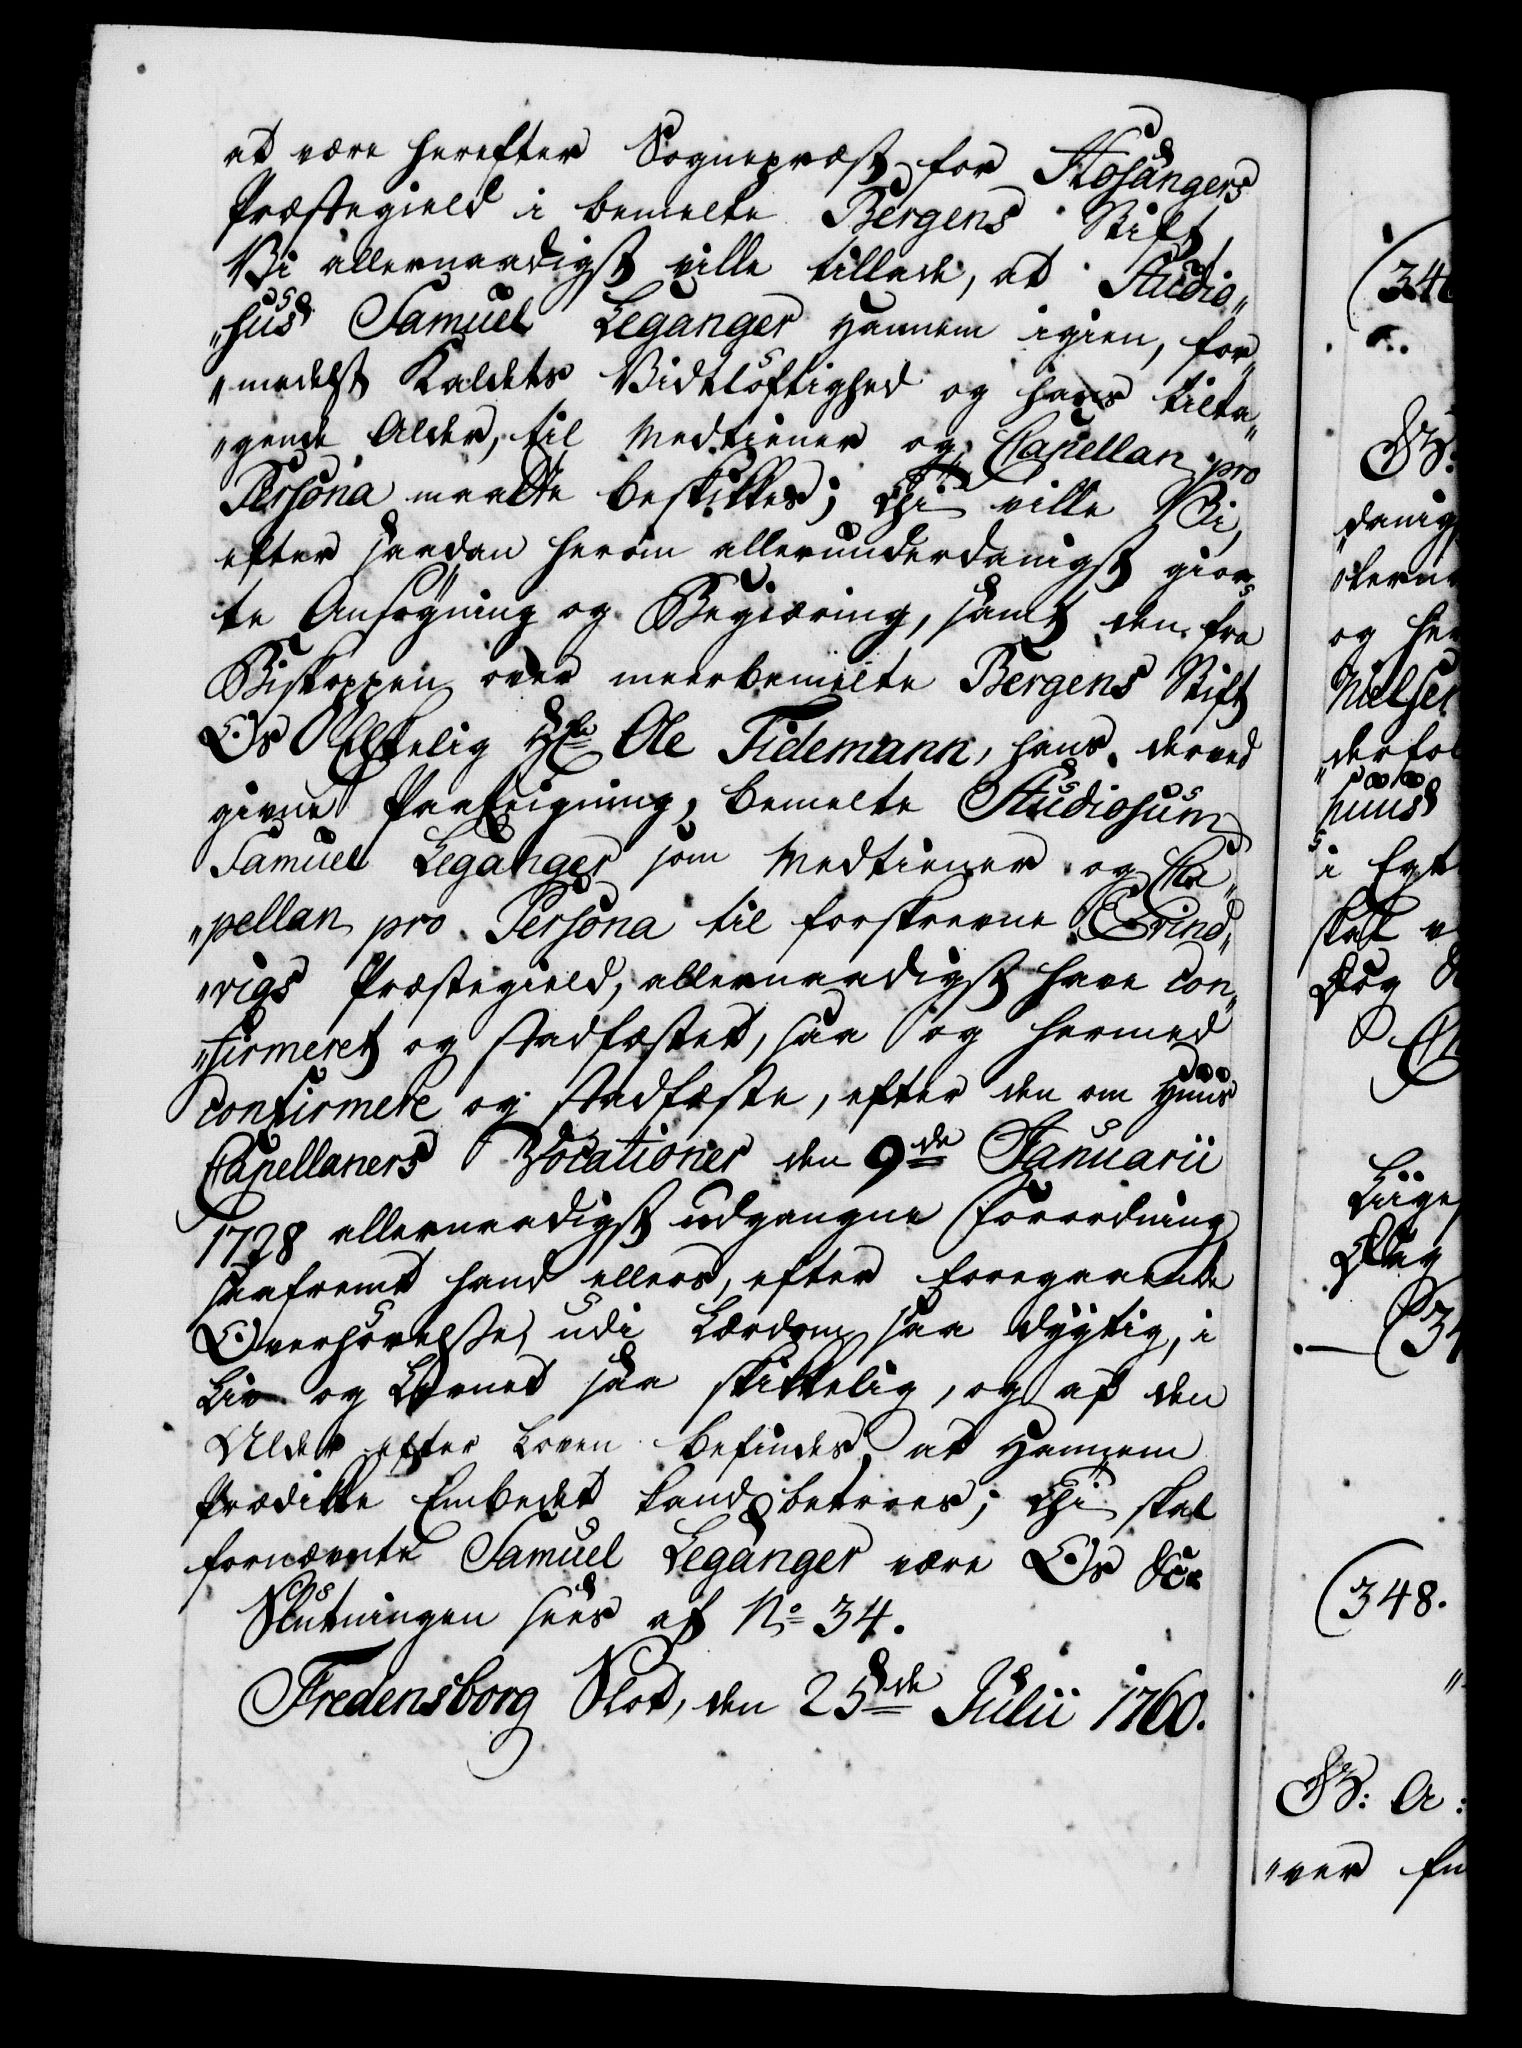 at være herefter Sognepræst for Hosangers
Præstegield i bemelte Bergens Stift,
Vi allernaadigst ville tillade, at Studio„
„sus Samuel Leganger hannem igien, for„
„medelst Kaldets Vidtløftighed og hans tilta„
„gende Alder, til Medtiener og Capellan pro
Persona maatte beskikkes; Thi ville Vi,
efter saadan herom allerunderdanigst gior„
te Ansøgning og Begiæring, samt den fra
Biskoppen over meerbemelte Bergens Stift
Os Elskelig Hr Ole Tidemann, hans derved
givne Paategning, bemelte Studiosum
Samuel Leganger som Medtiener og Ca„
„pellan pro Persona til forskrevne Evind„
„vigs Præstegield, allernaadigst have con„
„firmeret og stadfæstet, saa og hermed
confirmere og stadfæste, efter den om Huus
Capellaners Vocationer den 9de Januarii
1728 allernaadigst udgangne Forordning
saafremt hand ellers, efter foregaaende
Overhørelse, udi Lærdom saa dygtig, i
Liv og Levnet saa skikkelig, og af den
Alder efter Loven befindes, at hannem
Prædike Embedet kand betroes; Thi skal
fornævnte Samuel Leganger være Os &c
Slutningen sees af No 34.
Fredensborg Slot, den 25de Julii 1760.
danig
og her
Nielsen
„derfol
huus
skal
Dog
Liige
(348.
„ver